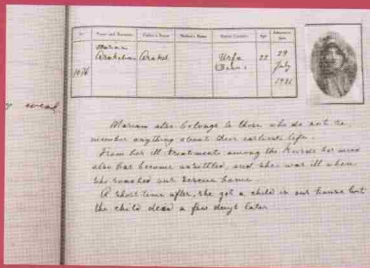 No
Name and Surname
Father's Name
Mother's Name
Age
Admission
Mariam
Arakelian
Arakel
Urfa
22
29
July
1921
Mariam also belongs to those who do not re
member anything about their earliest life.
From her ill-treatment among the Kurds her mind
also has become unsettled, and she was ill when
she reached our rescue home.
A short time after, she got a child in our house but
the child died a few days later.